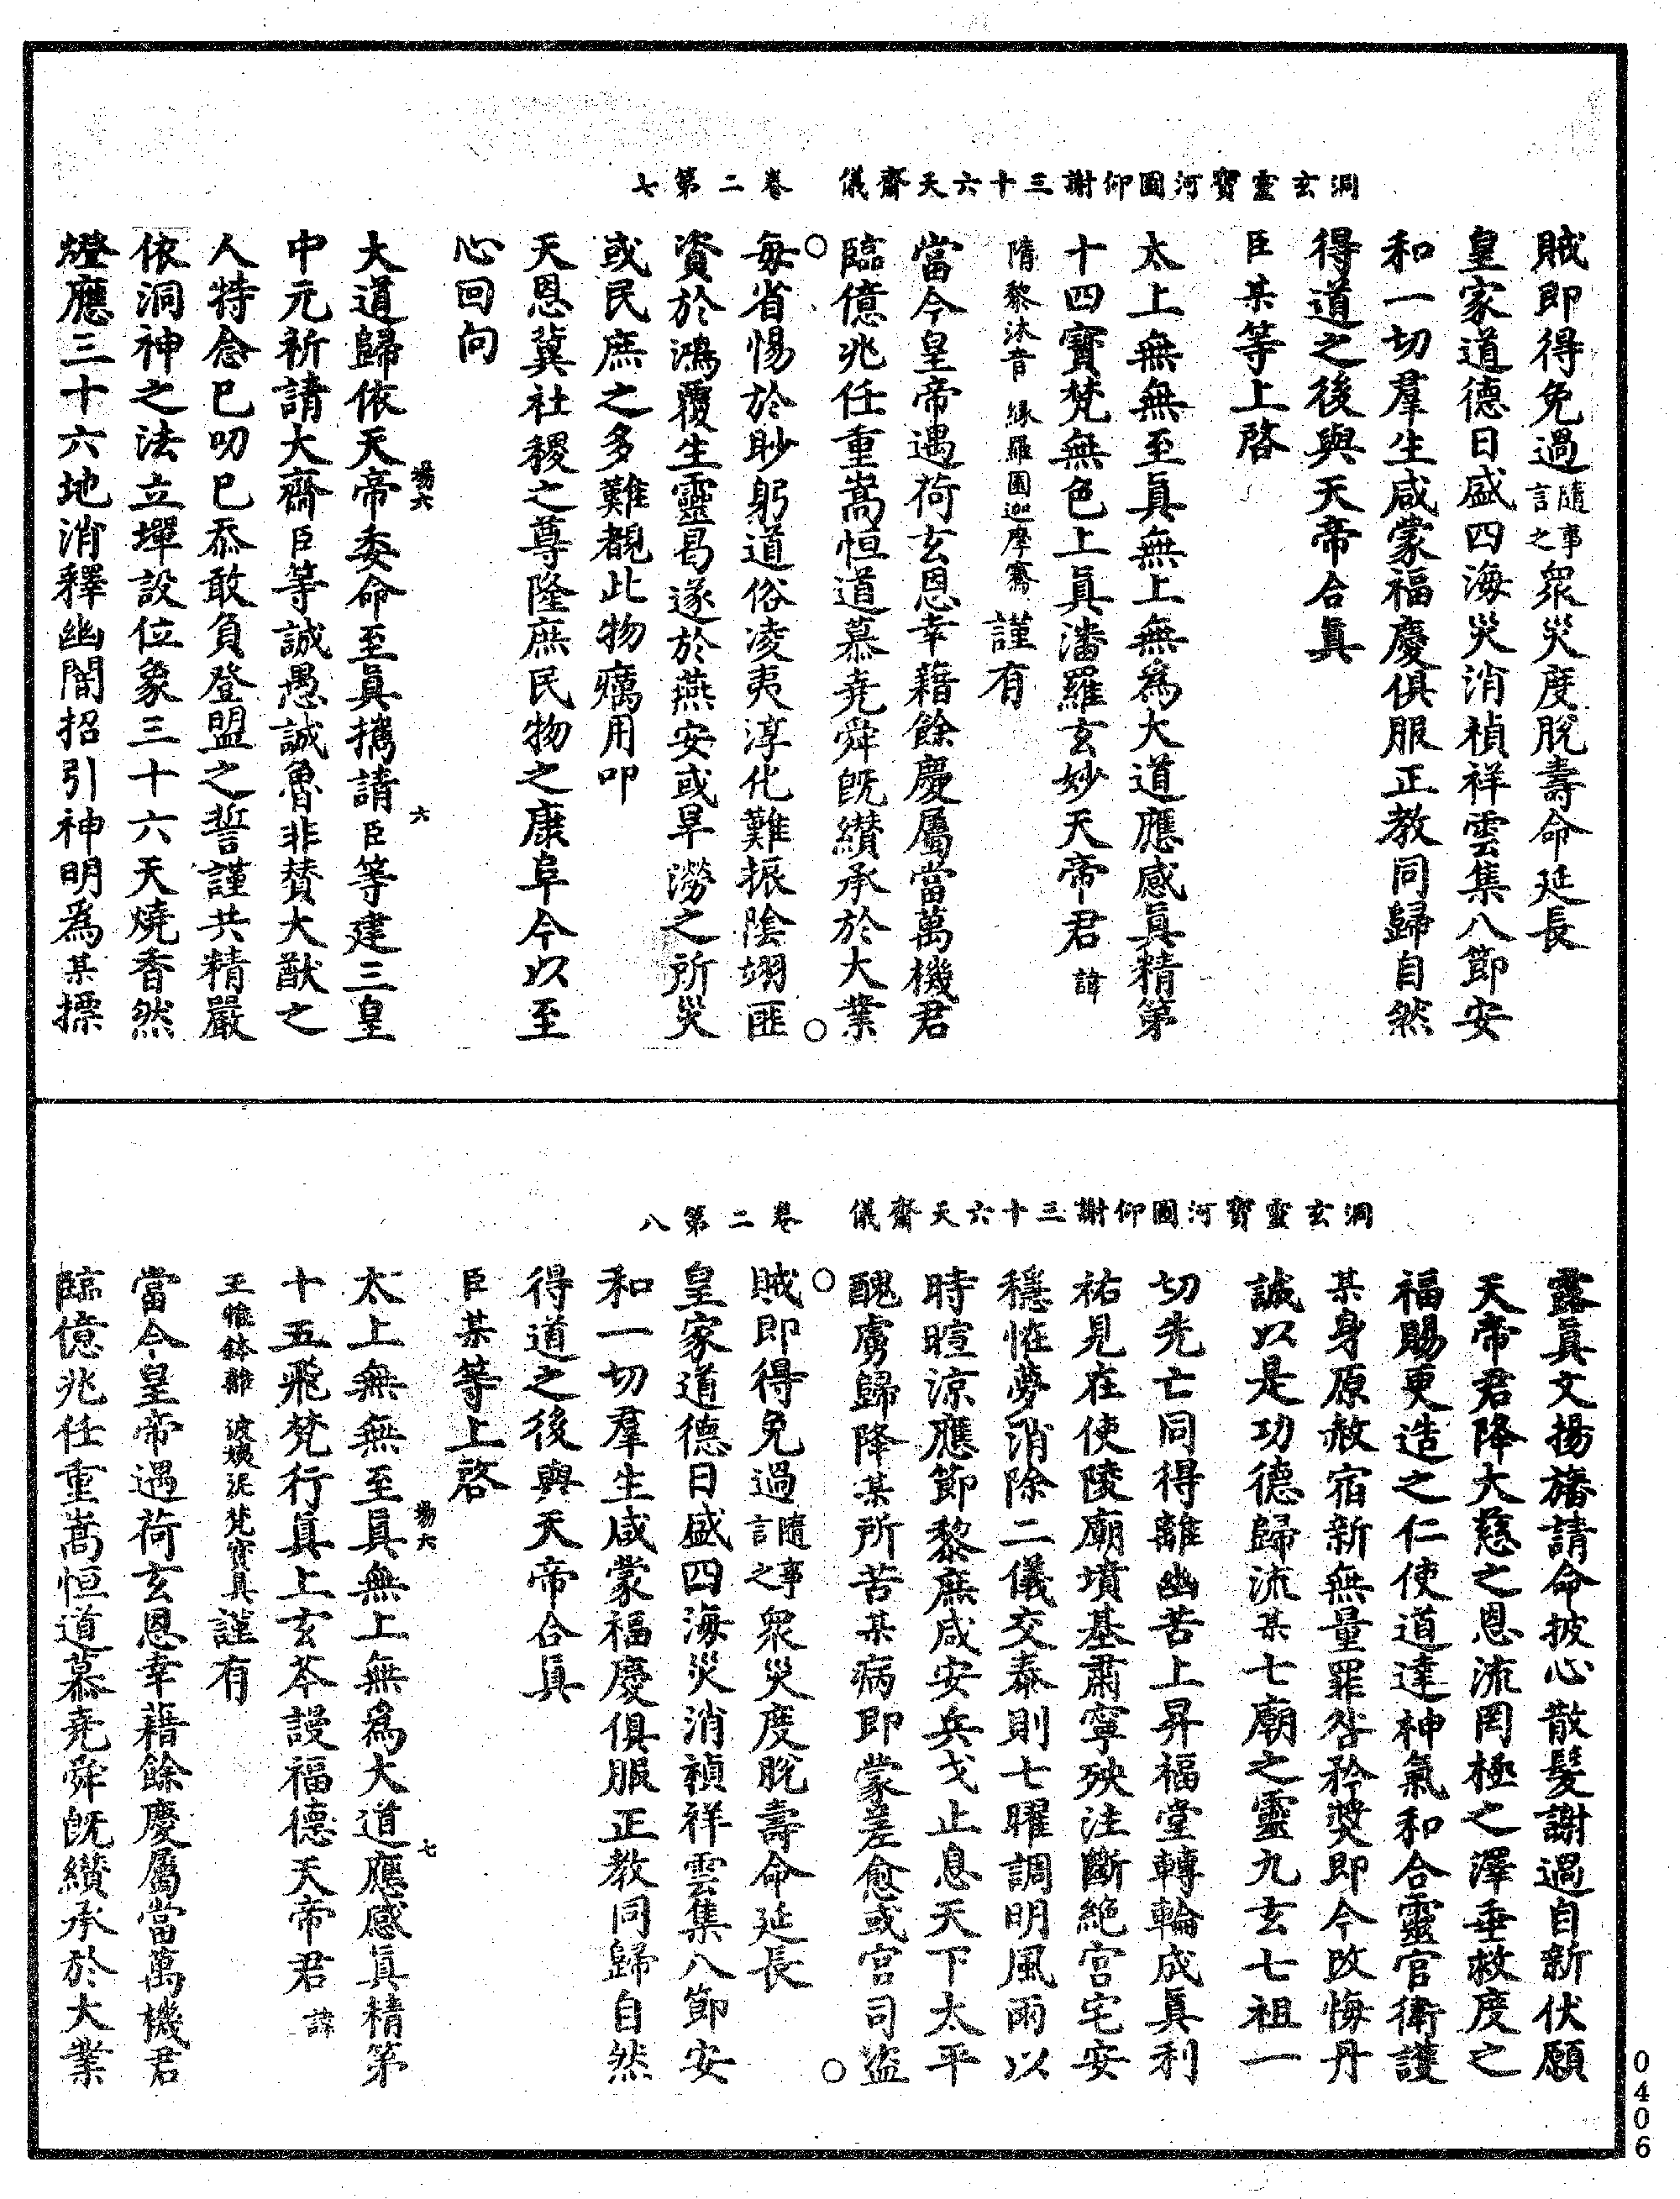 洞玄靈寶河圖仰謝三十六天齋儀 卷二第七
賊即得免過隨事言之衆災度脫壽命延長
皇家道德日盛四海災消禎祥雲集八節安
和一切羣生咸蒙福慶俱服正教同歸自然
得道之後與天帝合眞
臣某等上啓
太上無無至眞無上無爲大道應感眞精第
十四寶梵無色上眞潘羅玄妙天帝君諱
隋黎沐音 緣羅圓迦摩騫謹有
當今皇帝遇荷玄恩幸藉餘慶屬當萬機君
臨億兆任重嵩恒道慕堯舜旣纘承於大業
每省惕於眇躬道俗凌夷淳化難振陰翊匪
資於鴻覆生靈曷遂於燕安或旱澇之所災
或民庶之多難覩此物癘用叩
天恩冀社稷之尊隆庶民物之康阜今以至
心回向
楊六 六
大道歸依天帝委命至眞擕請臣等建三皇
中元祈請大齋臣等誠愚誠魯非賛大猷之
人特念已叨已忝敢負登盟之誓謹共精嚴
依洞神之法立墠設位象三十六天燒香然
燈應三十六地消釋幽闇招引神明爲某摽
洞玄靈寶河圖仰謝三十六天齋儀 卷二第八
露眞文揚旛請命披心散髮謝過自新伏願
天帝君降大慈之恩流罔極之澤垂救度之
福賜更造之仁使道達神氣和合靈官衛護
某身原赦宿新無量罪咎矜奬即今改悔丹
誠以是功德歸流某七廟之靈九玄七祖一
切先亡同得離幽苦上昇福堂轉輪成眞利
祐見在使陵廟墳基肅寧殃注斷絕宮宅安
穩恠夢消除二儀交泰則七曜調明風雨以
時暄涼應節黎庶咸安兵戈止息天下太平
醜虜歸降某所苦某病即蒙差愈或官司盜
賊即得免過隨事言之衆災度脫壽命延長
皇家道德日盛四海災消禎祥雲集八節安
和一切羣生咸蒙福慶俱服正教同歸自然
得道之後與天帝合眞
臣某等上啓
楊六 七
太上無無至眞無上無爲大道應感眞精第
十五飛梵行眞上玄芩謾福德天帝君諱
王惟鉢離 波姨泥梵寶具謹有
當今皇帝遇荷玄恩幸藉餘慶屬當萬機君
臨億兆任重嵩恒道慕堯舜旣纘承於大業
0406